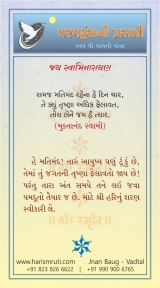 પરમહંસની પ્રસાદી
સ્વયં થી પરમની યાત્રા
જય સ્વામિનારાયણ
સમજ મતિમંદ રહેના હે દિન ચાર,
તે ક્યું તૃષ્ણા અધિક ફેલાવત,
તોય લેને જમ હેં ત્યાર.
(મુક્તાનંદ સ્વામી)
હે મતિમંદ! તારું આયુષ્ય ઘણું ટૂંકું છે,
તેમાં તું જગતની તૃષ્ણા કેમ ફેલાવતો જાય છે!
પરંતુ તારા અંત સમયે તને લઇ જવા
યમદૂતો તૈયાર જ છે. માટે શ્રી હરિનું શરણ
સ્વીકારી લે.
॥ हरि स्मृति ॥
www.harismruti.com
Jnan Baug - Vadtal
+91 823 826 6622 | +91 990 900 6765